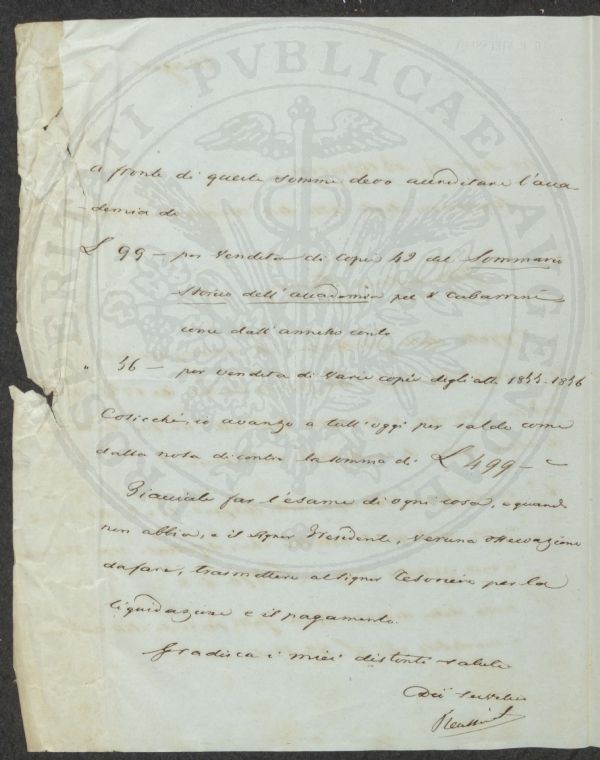 PROSPERITATI PUBLICAE AUGENDAE
a fronte di queste somme devo accreditare l'acca
-demia di
£ 99 — per vendita di copie 42 del Sommario
storico dell'accademia pel
come dall'annesso conto
" 36 — per vendita di varie copie degli atti 1855-1856
Cosicchè, io avanzo a tutt'oggi per saldo come
dalla nota di contro la somma di £ 499 —
Piacciale far l'esame di ogni cosa, e quand
non abbia, e il Signor Presidente, veruna osservazione
da fare, trasmettere al Signor Tesoriere per la
liquidazione e il pagamento.
Gradisca i miei distinti saluti